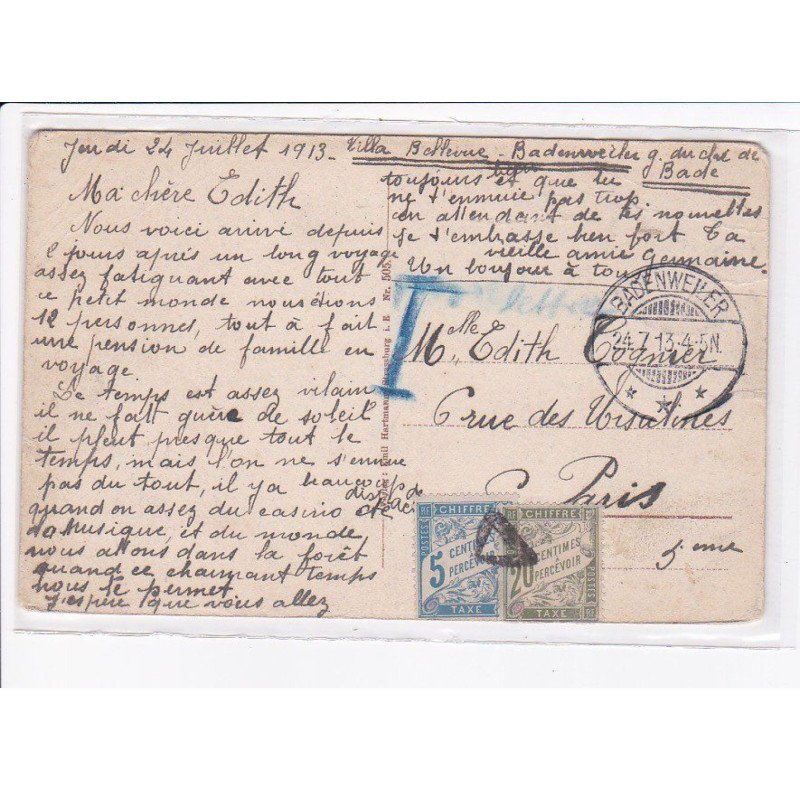 Jeudi 24 Juillet 1913 - Villa Bellevue - Badenweiler g. duché de
Bade
Ma chère Edith
Nous voici arrivé depuis
2 jours après un long voyage
assez fatiguant avec tout
ce petit monde nous étions
12 personnes, tout à fait
une pension de famille en
voyage
Le temps est assez vilain
il ne fait guère de soleil
il pleut presque tout le
temps, mais l'on ne s'ennuie
pas du tout, il y a beaucoup de
quand on assez du casino
la Musique, et du monde
nous allons dans la forêt
quand ce charmant temps
nous le permet
J'espère que vous allez
toujours bien et que tu
ne t'ennuie pas trop
en attendant de tes nouvelles
je t'embrasse bien fort Ta
vieille amie Germaine.
Un bonjour à tous
T
BADENWEILER
24.7.13.4-5N.
Mlle Edith Cormier
6 rue des Ursulines
Paris
5eme
Emil Hartmann, Strassburg i. E. Nr. 505.
POSTES
RF CHIFFRE
5
CENTIMES
À PERCEVOIR
TAXE
CHIFFRE RF
20
CENTIMES
À PERCEVOIR
POSTES
TAXE